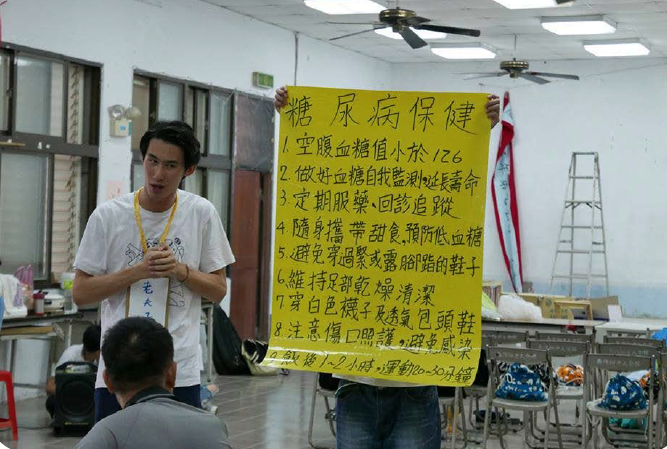 糖尿病保健
1. 空腹血糖值小於126
2. 做好血糖自我監測,延長壽命
3. 定期服藥、回診追蹤
4. 隨身攜帶甜食,預防低血糖
5. 避免穿過緊或露腳趾的鞋子
6. 維持足部乾燥清潔
7. 穿白色襪子及透氣包頭鞋
8. 注意傷口照護,避免感染
9. 飯後1~2小時,運動20~30分鐘